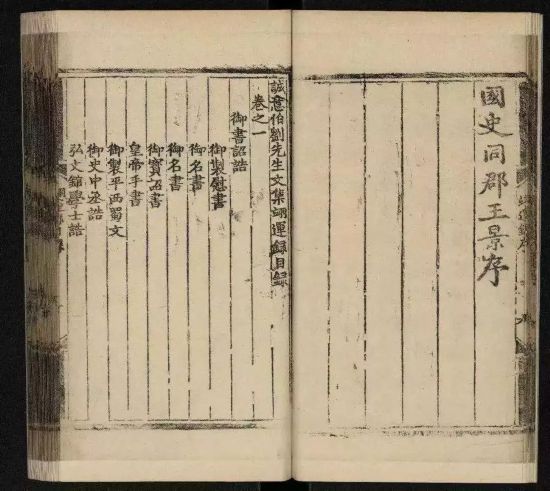 國史同郡王景序
誠意伯劉先生文集翊運錄目錄
卷之一
御書詔誥
御製慰書
御名書
御名書
御寶函書
皇帝手書
御製平西蜀文
御史中丞誥
弘文館學士誥